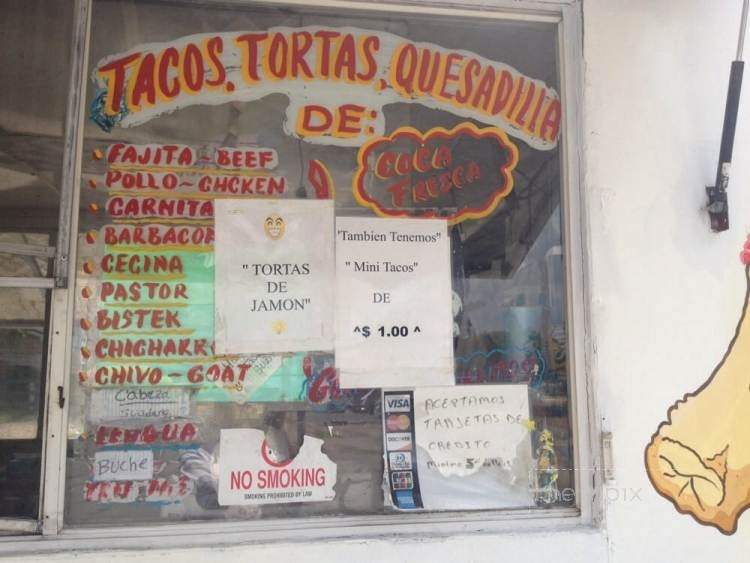 TACOS, TORTAS, QUESADILLA
DE:
FAJITA~BEEF
POLLO~CHCKEN
CARNITA
BARBACOA
CECINA
PASTOR
BISTEK
CHICHARR
CHIVO-GOAT
Cabeza
LENGUA
Buche
COCA
FRESCA
" TORTAS
DE
JAMON"
"Tambien Tenemos"
" Mini Tacos"
DE
^$ 1.00 ^
NO SMOKING
SMOKING PROHIBITED BY LAW
VISA
MasterCard
DISCOVER
ACEPTAMOS
TARJETAS DE
CREDITO